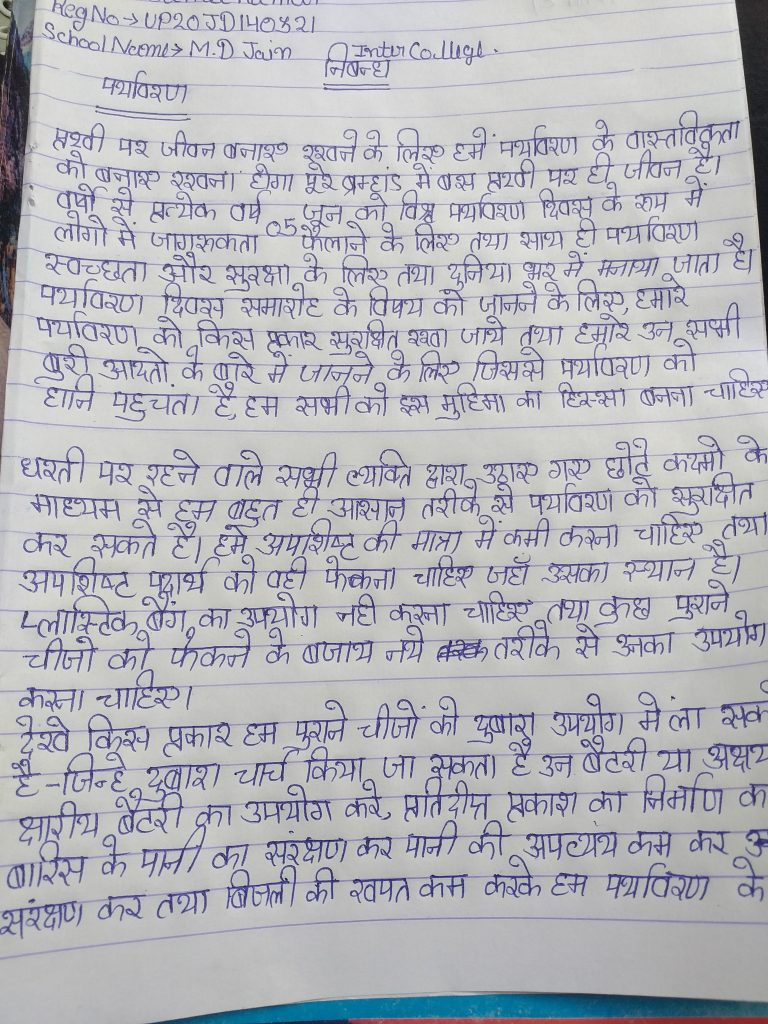 Reg No → UP20JD140821
School Name → M.D Jain Inter College.
निबन्ध
पर्यावरण
प्रथ्वी पर जीवन बनाए रखने के लिए हमें पर्यावरण के वास्तविकता
को बनाए रखना होगा पूरे ब्रम्हांड मे बस प्रथ्वी पर ही जीवन है।
वर्षो से प्रत्येक वर्ष 05 जून को विश्व पर्यावरण दिवस के रूप में
लोगो में जागरुकता फैलाने के लिए तथा साथ ही पर्यावरण
स्वच्छता और सुरक्षा के लिए तथा दुनिया भर में मनाया जाता है।
पर्यावरण दिवस समारोह के विषय को जानने के लिए, हमारे
पर्यावरण को किस प्रकार सुरक्षित रखा जाये तथा हमारे उन सभी
बुरी आदतों के बारे में जानने के लिए जिससे पर्यावरण को
हानि पहुचता है, हम सभी को इस मुहिमा का हिस्सा बनना चाहिए
धरती पर रहने वाले सभी व्यक्ति द्वारा उठाए गए छोटे कदमो के
माध्यम से हम बहुत ही आसान तरीके से पर्यावरण को सुरक्षित
कर सकते है। हमे अपशिष्ट की मात्रा में कमी करना चाहिए तथा
अपशिष्ट पदार्थ को वही फेकना चाहिए जहाँ उसका स्थान है।
प्लास्टिक बैग का उपयोग नही करना चाहिए तथा कुछ पुराने
चीजो को फेकने के बजाय नये तरीके से उनका उपयोग
करना चाहिए।
देखे किस प्रकार हम पुराने चीजों को दुबारा उपयोग मे ला सकते
है - जिन्हे दुबारा चार्ज किया जा सकता है उन बैटरी या अक्षय
क्षारीय बैटरी का उपयोग करे, प्रतिदीप्त प्रकाश का निर्माण क
बारिस के पानी का संरक्षण कर पानी की अपव्यय कम कर
संरक्षण कर तथा बिजली की खपत कम करके हम पर्यावरण के